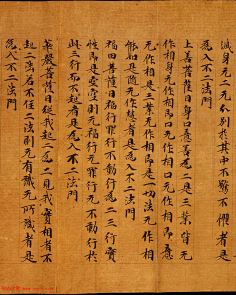 滅身无二无分別於其中不驚不懼者是
為入不二法門
上善菩薩曰身口意善為二是三業皆无
作相身无作相即口无作相口无作相即意
无作相是三業无作相即一切法无作相
能如是隨无作慧者是為入不二法門
福田菩薩曰福行罪行不動行為二三行實
性即是空空則无福行无罪行无不動行於
此三行而不起者是為入不二法門
華嚴菩薩曰從我起二為二見我實相者不
起二法若不住二法則无有識无所識者是
為入不二法門